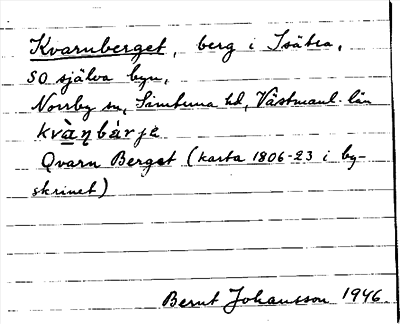 Kvarnberget, berg i Isätra,
SO själva byn,
Norrby sn, Simtuna hd, Västmanl. län
kvàɳbárjɛ
Qvarn Berget (karta 1806-23 i by-
skrinet)
Bernt Johansson 1946